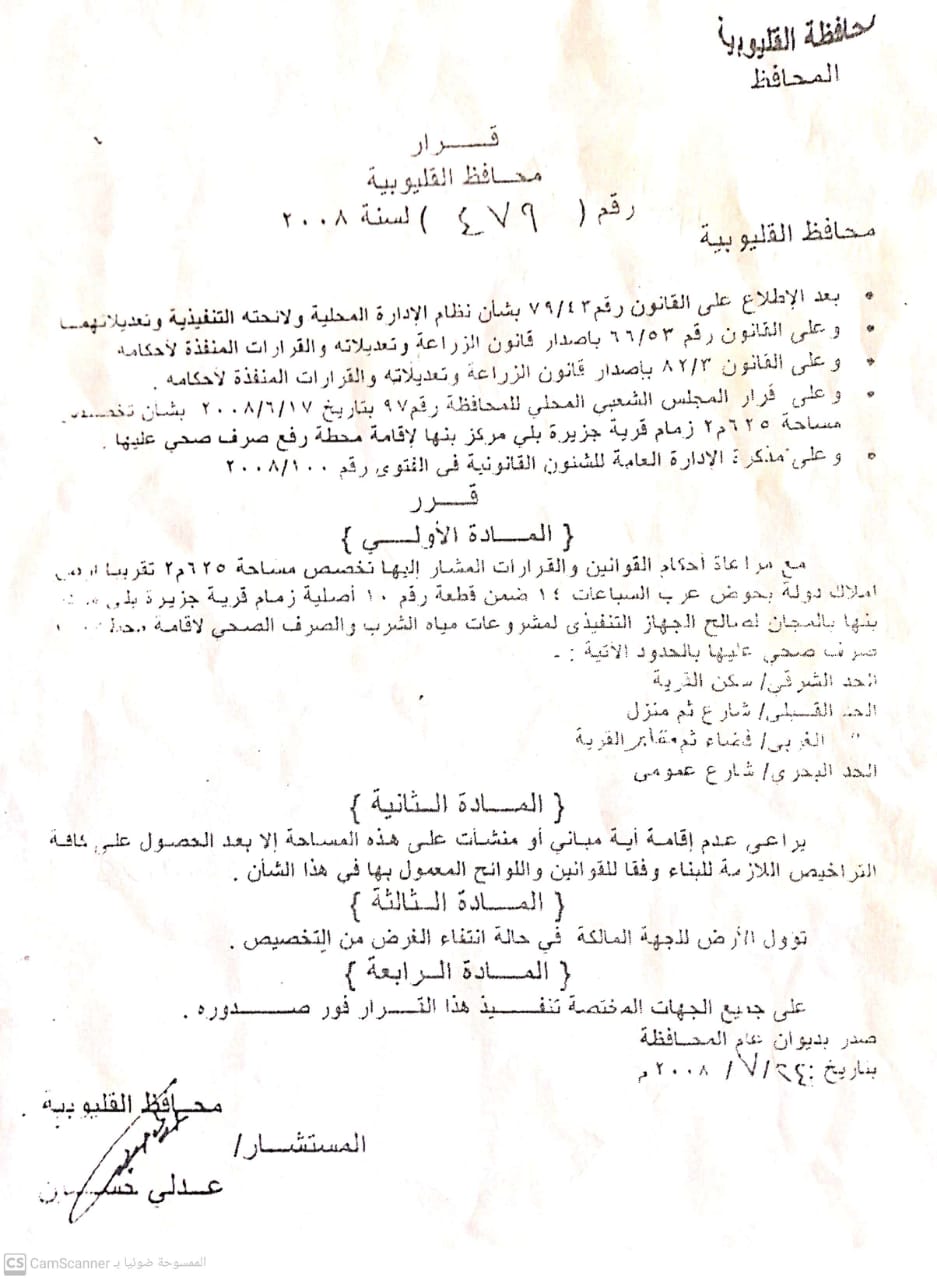 محافظة القليوبية
المحافظ
قـــرار
محـافظ القليوبية
رقم ( ٤٧٩ ) لسنة ٢٠٠٨
محافظ القليوبية
• بعد الإطلاع على القانون رقم ٧٩/٤٣ بشأن نظام الإدارة المحلية ولائحته التنفيذية وتعديلاتهمـا
• وعلى القانون رقم ٦٦/٥٣ بإصدار قانون الزراعة وتعديلاته والقرارات المنفذة لأحكامه
• وعلى القانون ٨٢/٣ بإصدار قانون الزراعة وتعديلاته والقرارات المنفذة لأحكامه .
• وعلى قرار المجلس الشعبي المحلي للمحافظة رقم ٩٧ بتاريخ ٢٠٠٨/٦/١٧ بشأن
مساحة ٦٢٥م٢ زمام قرية جزيرة بلي مركز بنها لإقامة محطة رفع صرف صحي عليها .
• وعلى مذكرة الإدارة العامة للشئون القانونية فى الفتوى رقم ٢٠٠٨/١٠٠
قـــرر
{ المــادة الأولــي }
مع مراعاة أحكام القوانين والقرارات المشار إليها تخصص مساحة ٦٢٥م٢ تقريبا
املاك دولة بحوض عرب السباعات ١٤ ضمن قطعة رقم ١٠ أصلية زمام قرية جزيرة بلي
بنها بالمجان لصالح الجهاز التنفيذى لمشروعات مياه الشرب والصرف الصحي لاقامة
صرف صحي عليها بالحدود الآتية : ـ
الحد الشرقي/ سكن القرية
الحد القــبلى/ شارع ثم منزل
" الغربى/ فضاء ثم مقابر القرية
الحد البحرى/ شارع عمومى
{ المــادة الـثانية }
يراعى عدم إقامة أية مباني أو منشأت على هذه المساحة إلا بعد الحصول على كافة
التراخيص اللازمة للبناء وفقا للقوانين واللوائح المعمول بها في هذا الشأن .
{ المــادة الـثالثة }
تؤول الأرض للجهة المالكة في حالة انتفاء الغرض من التخصيص .
{ المــادة الـرابعة }
على جميع الجهات المختصة تنفـــيذ هذا القــرار فور صــــدوره .
صدر بديوان عام المحـافظة
بتاريخ / ٧ / ٢٠٠٨ م
محـافظ القليوبية
المستشـــار/
عـدلي حســـين
CS CamScanner الممسوحة ضوئيا بـ